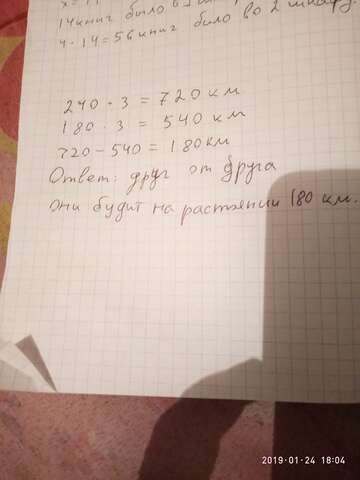 14 книг было в 1
4 · 14 = 56 книг было во 2 шкафу.
240 · 3 = 720 км
180 · 3 = 540 км
720 - 540 = 180 км
Ответ: друг от друга
они будит на растоянии 180 км.
2019-01-24 18:04